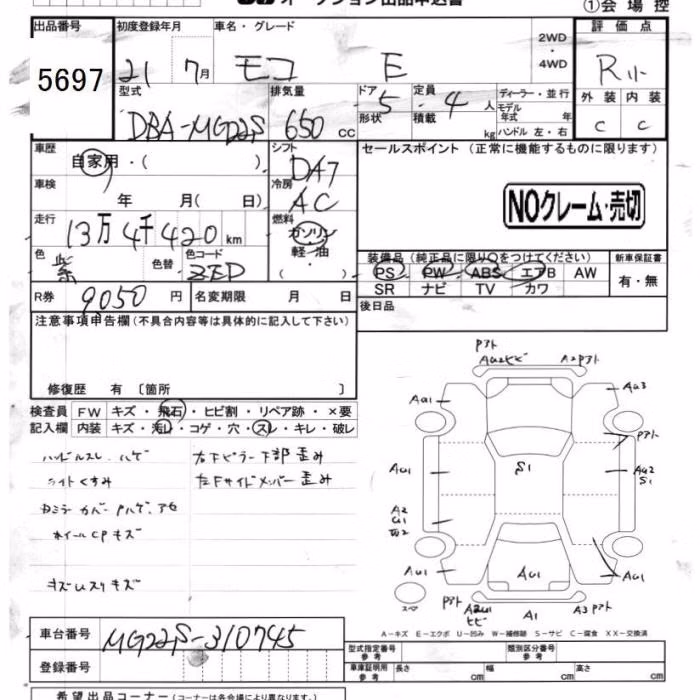 オークション出品申込書
①会場控
出品番号 初度登録年月 車名・グレード 評価点
5697 21 7月 モコ E 2WD ・ 4WD R
型式 排気量 ドア形状 定員積載 ディーラー・並行 外装 内装
DBA-MG22S 650 CC 5 ・4人 kg モデル年式 年 ハンドル 左・右 C C
車歴 自家用・( ) シフト DA7 セールスポイント (正常に機能するものに限ります)
車検 年 月( 日) 冷房 AC
NOクレーム・売切
走行 13万4千420km 燃料 ガソリン・軽油・( )
色 紫 色替 色コード ZED
装備品 (純正品に限り○をつけてください) 新車保証書
PS PW ABS エアB AW 有・無
SR ナビ TV カワ
R券 9050円 名変期限 月 日 後日品
注意事項申告欄 (不具合内容等は具体的に記入して下さい)
修復歴 有 〔箇所 〕
検査員 FW キズ・飛石・ヒビ割・リペア跡・×要
記入欄 内装 キズ・汚レ・コゲ・穴・スレ・キレ・破レ
ハンドルスレ、ハゲ 右下ピラー下部歪み
ライトくすみ 左Fサイドメンバー歪み
ホイールCPキズ
Pアト
AU2ヒビ A2Pアト
AU1 AU3
Pアト
AU1 S1 AU2
S1
A2
U1
AU1 AU1 AU1
スペ Pアト A2U1 ヒビ A1 A3Pアト
A－キズ E－エクボ U－凹み W－補修跡 S－サビ C－腐食 XX－交換済
車台番号 MG22S-310745
登録番号
型式指定番号 参考 類別区分番号 参考
車庫証明用 参考 長さ cm 幅 cm 高さ cm
希望出品コーナー (コーナーは各会場により異なります。)